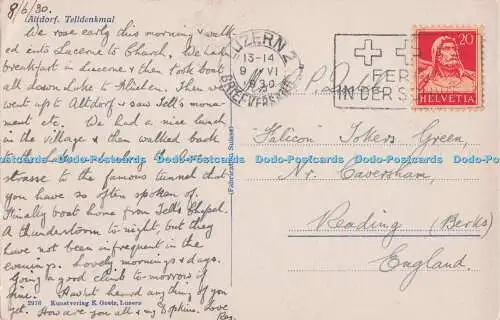 8/6/30
Altdorf. Telldenkmal
We rose early this morning & walk
ed into Lucerne to Church, We had
breakfast in Lucerne & then took boat
all down Lake to Fluelen. Then we
went up to Altdorf & saw Tell's monu-
ment etc. We had a nice lunch in
the village & then walked back
the
strasse to the famous tunnel that
you have so often spoken of.
Finally boat home from Tell's Chapel.
A thunderstorm to-night, but they
have not been infrequent in the
evenings. Lovely mornings & days.
Going a good climb to-morrow if
fine. Havn't heard anything of you
yet. How are you all & my Love
2976 Kunstverlag E. Goetz, Luzern
(Fabrication Suisse)
LUZERN 2
13-14
9 VI
1930
BRIEFVERSAND
FER
IN DER S
20
HELVETIA
Falicon Tokers Green,
Nr. Caversham,
Reading (Berks)
England.
Dodo-Postcards Dodo-Postcards Dodo-Postcards